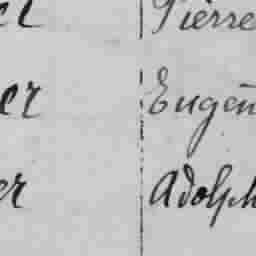 er Pierre
er Eugèn
er Adolph